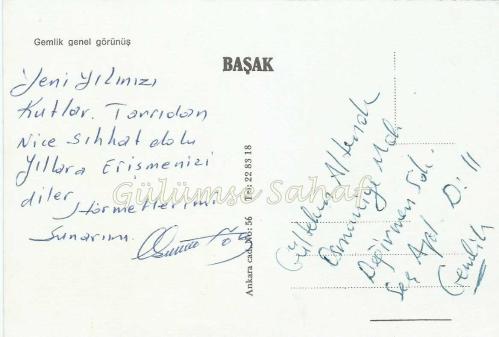 Gemlik genel görünüş
BAŞAK
Yeni Yılınızı
Kutlar. Tanrıdan
Nice Sıhhat dolu
Yıllara Erişmenizi
diler
Hürmetlerimi
Sunarım.
Ankara cad. No: 56 Tel: 22 83 18
Gültekin
Osmaniye Mah
Değirmen Sok.
Apt. D: 11
Gemlik
Gülümse Sahaf